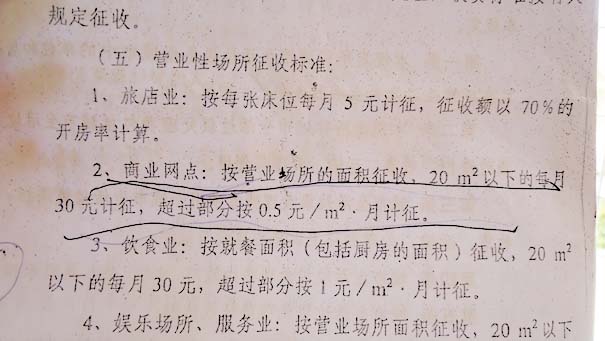 规定征收。
（五）营业性场所征收标准：
1、旅店业：按每张床位每月 5 元计征，征收额以 70%的
开房率计算。
2、商业网点：按营业场所的面积征收，20 m²以下的每月
30 元计征，超过部分按 0.5 元／m²·月计征。
3、饮食业：按就餐面积（包括厨房的面积）征收，20 m²
以下的每月 30 元，超过部分按 1 元／m²·月计征。
4、娱乐场所、服务业：按营业场所面积征收，20 m²以下